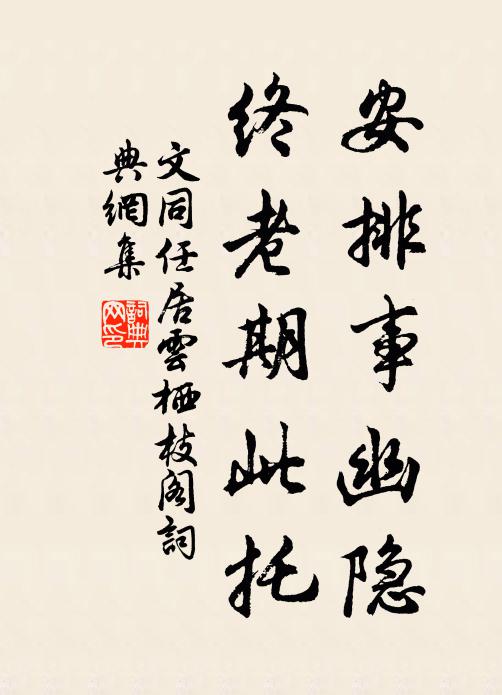 安排事幽隐
终老期此托
文同任居雲栖枝阁詞
典網集
詞典网印